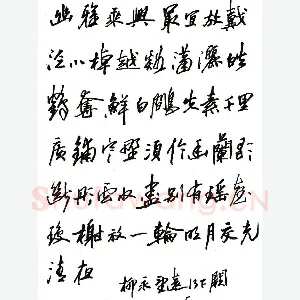 幽雅乘興最宜訪戴
泛小棹越溪瀟灑皓
鶴奪鮮白鷴失素千里
廣鋪寒野須信幽蘭歌
斷彤雲收盡別有瑤臺
瓊榭放一輪明月交光
清夜
柳永望遠行